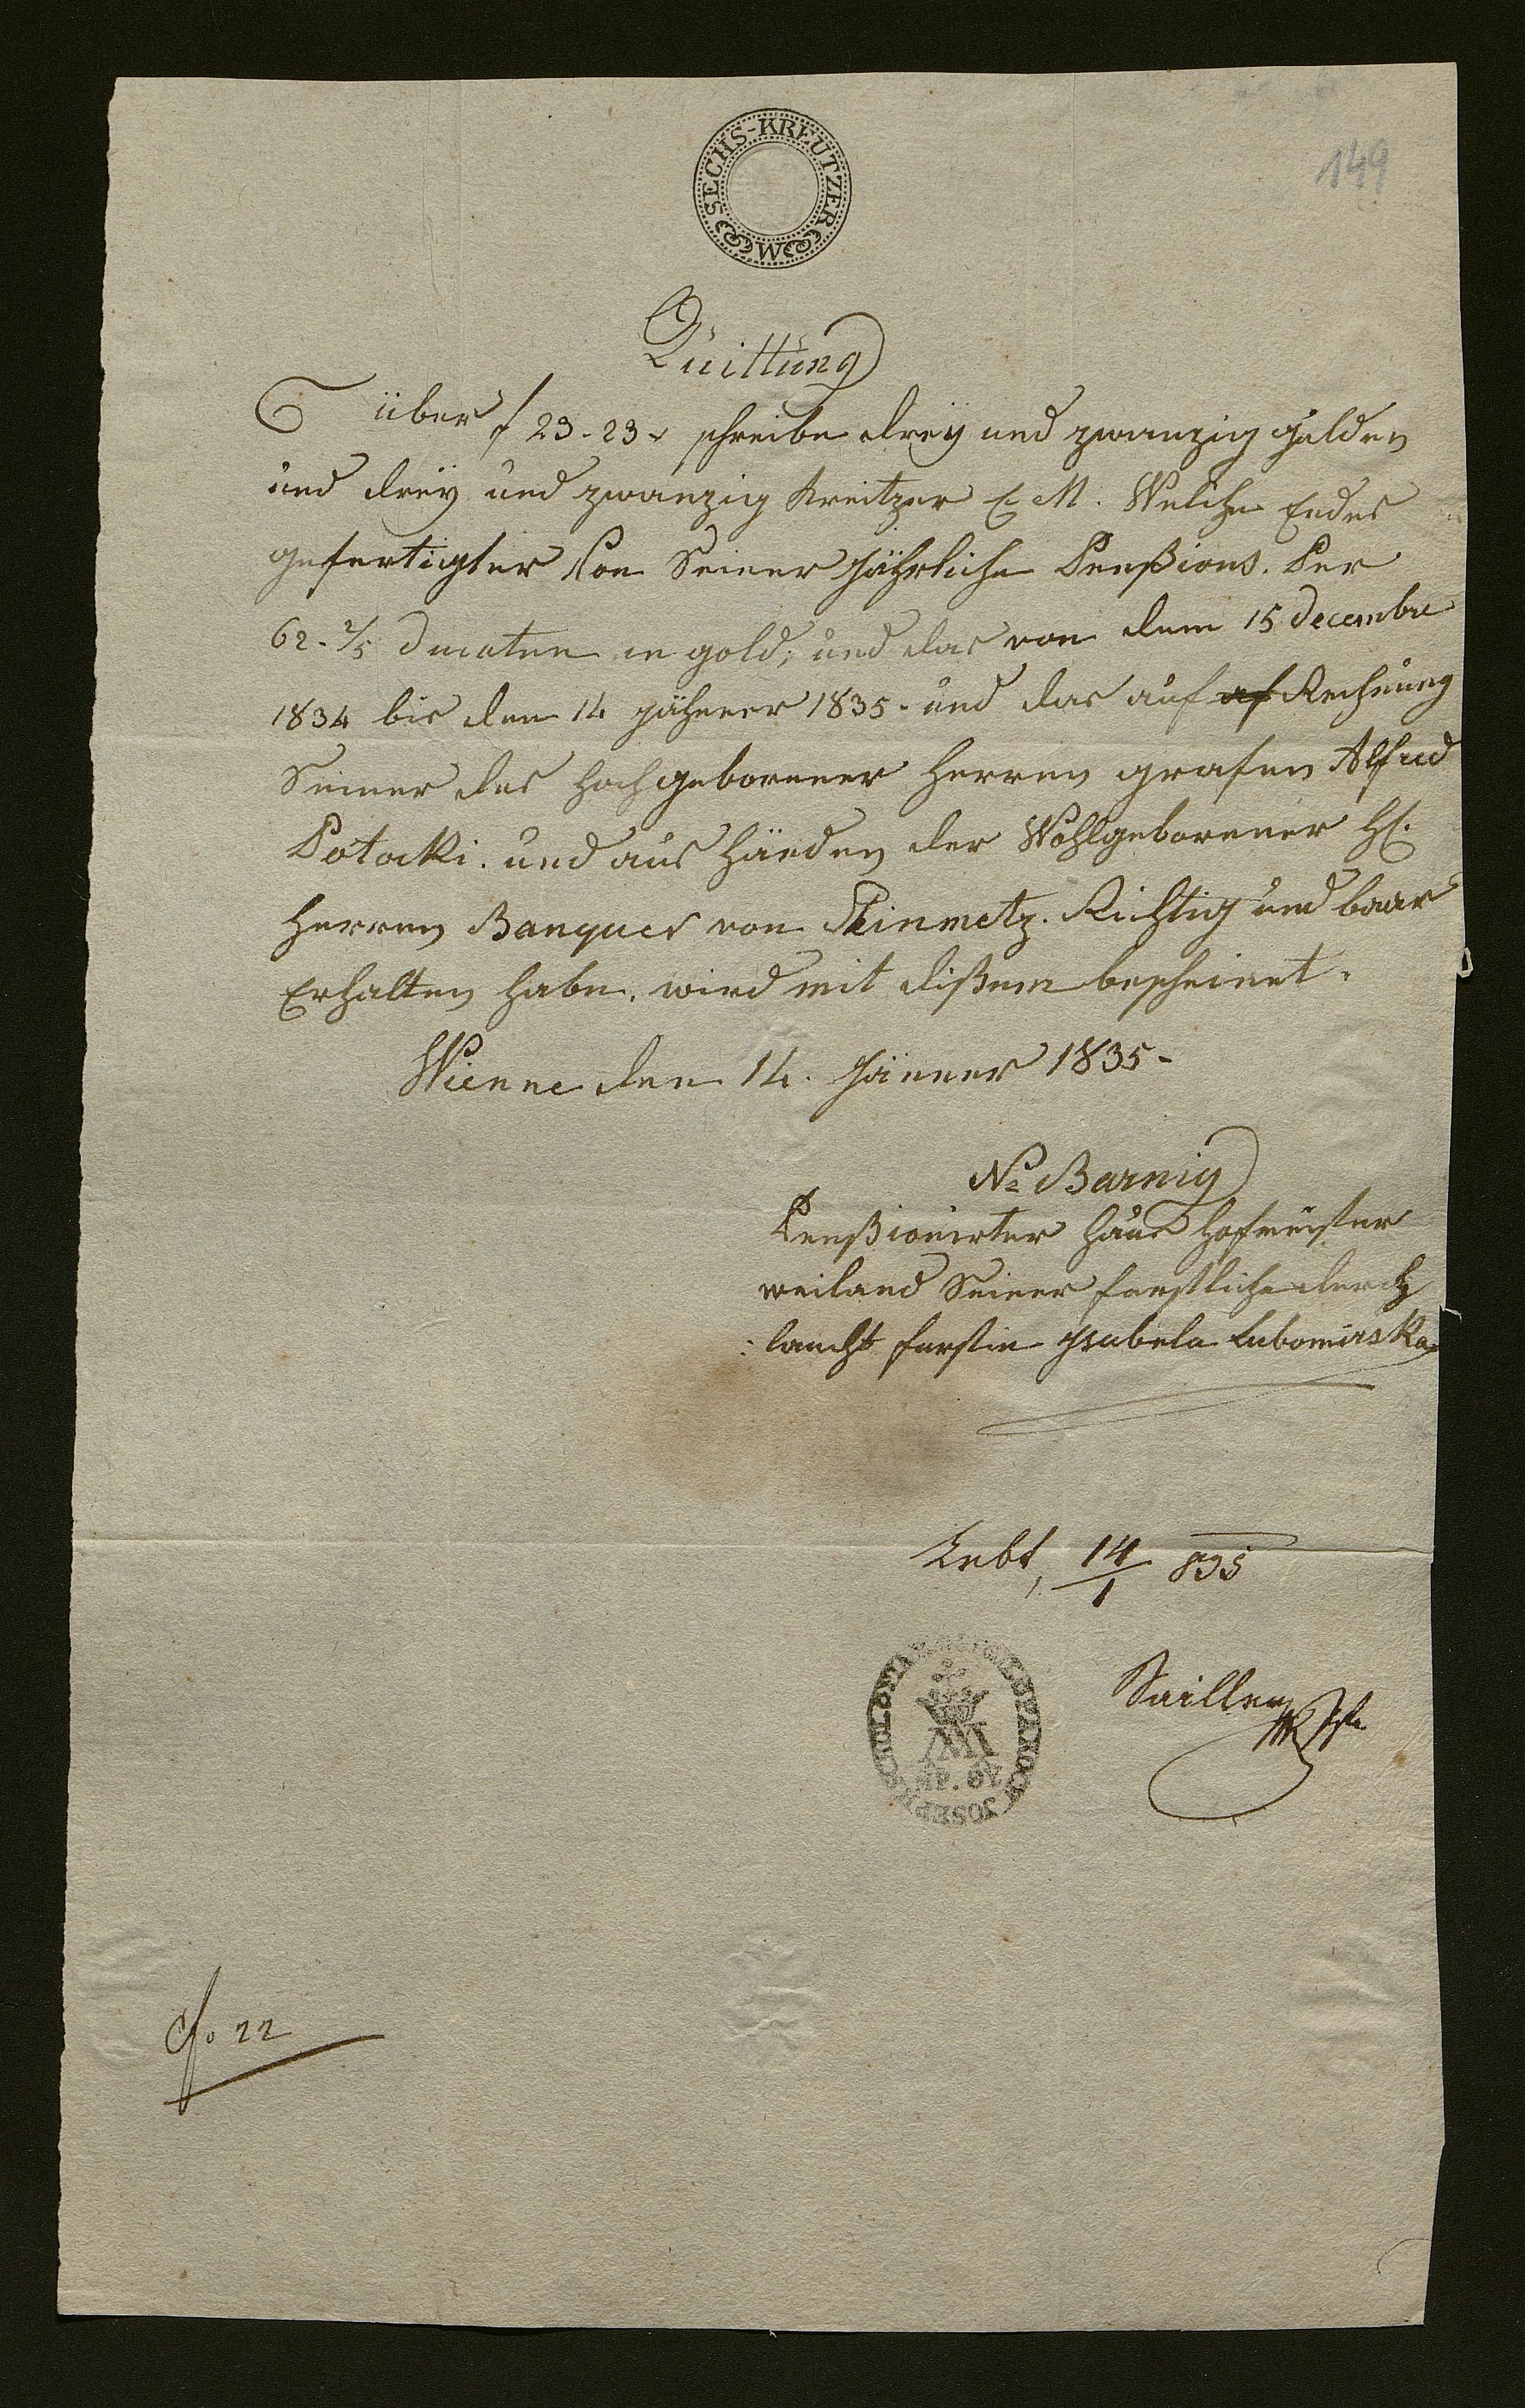 149
SECHS-KREUTZER
W
Quittung
über f 23-23x schreibe dreÿ und zwanzig gulden
und dreÿ und zwanzig Kreitzer C. M. Welche Endes
gefertigter von Seiner Jährliche Penßions. Per
62-2/5 Ducaten in gold, und das von dem 15 decembre
1834 bis den 14 jähner 1835 - und das auf af Rechnung
Seiner des Hochgeborener Herren grafen Alfred
Potocki. und aus Händen der Wohlgeborener H:
Herren Banques von Steinmetz. Richtig und baar
Erhalten habe. wird mit dißem bescheinet.
Wienne den 14. Jänner 1835-
No Barnig
Penßionirter Haus Hofmeister
weiland Seiner farstliche durch
: laucht farstin Isabela Lubomirska
Lebt, 14/1 835
Sailler
JOSEPH
No 22